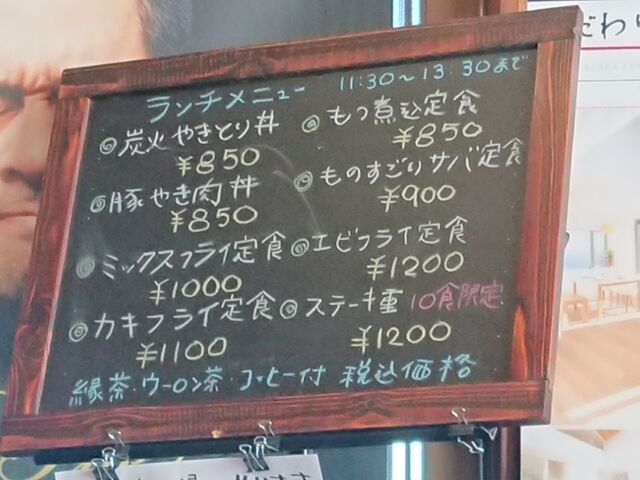 ランチメニュー 11:30～13:30まで
◎炭火やきとり丼
¥850
◎豚やき肉丼
¥850
◎ミックスフライ定食
¥1000
◎カキフライ定食
¥1100
◎もつ煮込定食
¥850
◎ものすごいサバ定食
¥900
◎エビフライ定食
¥1200
◎ステーキ重 10食限定
¥1200
縁茶・ウーロン茶・コーヒー付 税込価格
だわり